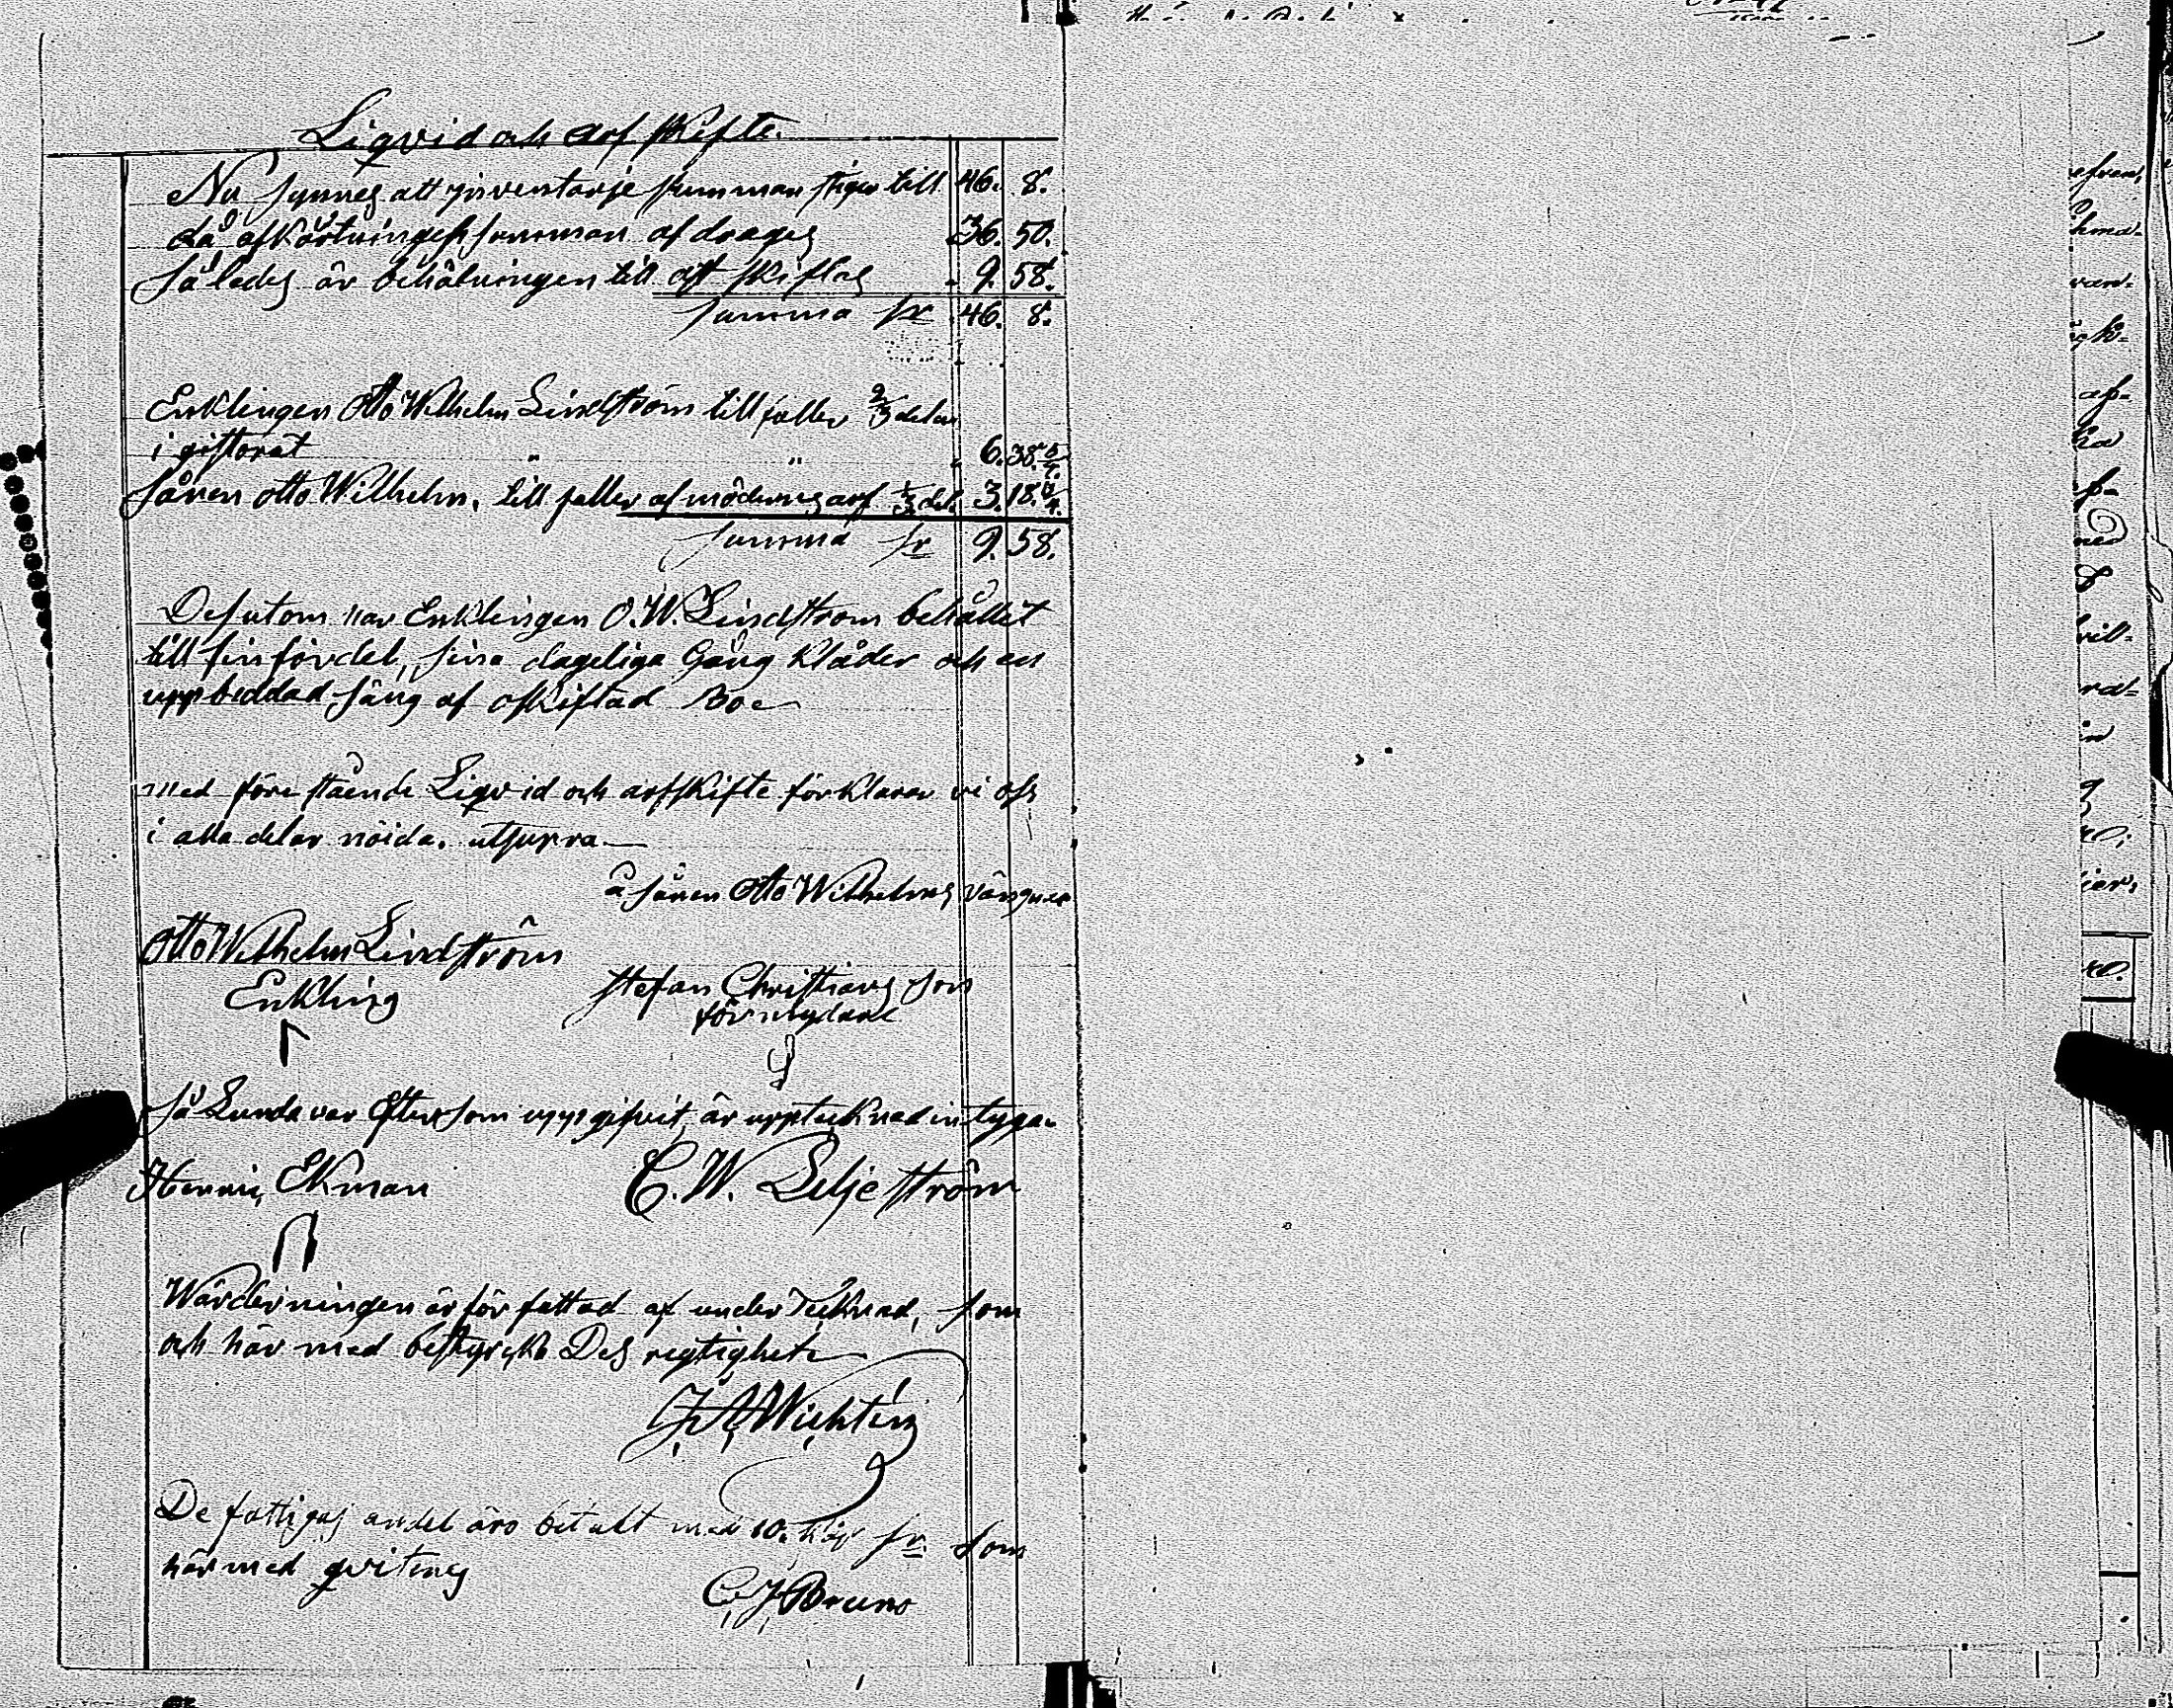 Liqvid och arfskifte.
Nu synnes att inventarje summan stiger till 46. 8.
då afkortningessumman afdrages 36. 50.
Således är behålningen till att skiftas 9. 58.
Summa sr 46. 8.
Enklingen Otto Wilhelm Lindström tillfaller 2/3 delar
i giftorät " " 6. 38.
Sånen Otto Wilhelm. tillfaller af mödernes arf 1/3 del. 3. 18.
Summa sr 9. 58.
Desutom har Enklingen O. W. Lindstrom behållit
till sin fördel, sina dageliga Gång kläder och en
uppbeddad säng af oskiftad Boe
med förestående Liqvid och arfskifte förklarar vi oss
i alla delar nöida. utsupra
å sånen Otto Wilhelms vängnar
Otto Wilhelm Lindström
Enkling
Stefan Christians son
förmydare
Så Lunda var Efter som uppgifvit, är upptecknad intygar
Henric Ekman
C. W. Seljeström
Wärderningen är författad af underTecknad, som
och här med bestyrcka Des regtighet
De fattigas andel äro betalt med 10. kop sr. som
här med qviteras
C. J. Bruno